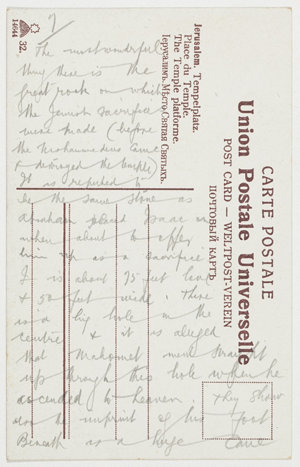 7)
The most wonderful
thing there is the
great rock on which
the Jewish sacrifices
were made (before
the Mohammedans came
& destroyed the temple)
It is reputed to
be the same stone as
Abraham placed Isaac on
when about to offer
him up as a sacrifice
It is about 75 feet long
& 50 feet wide. There
is a big hole in the
centre & it is alleged
that Mahomet went straight
up through this hole when he
ascended to heaven. They show
also the imprint of his foot
Beneath is a huge cave
14644
32.
Jerusalem. Tempelplatz.
Place du Temple.
The Temple platforme.
Іерусалимъ. Мѣсто Святая Святыхъ.
CARTE POSTALE
Union Postale Universelle
POST CARD — WELTPOST-VEREIN
ПОЧТОВЫЙ КАРТЪ